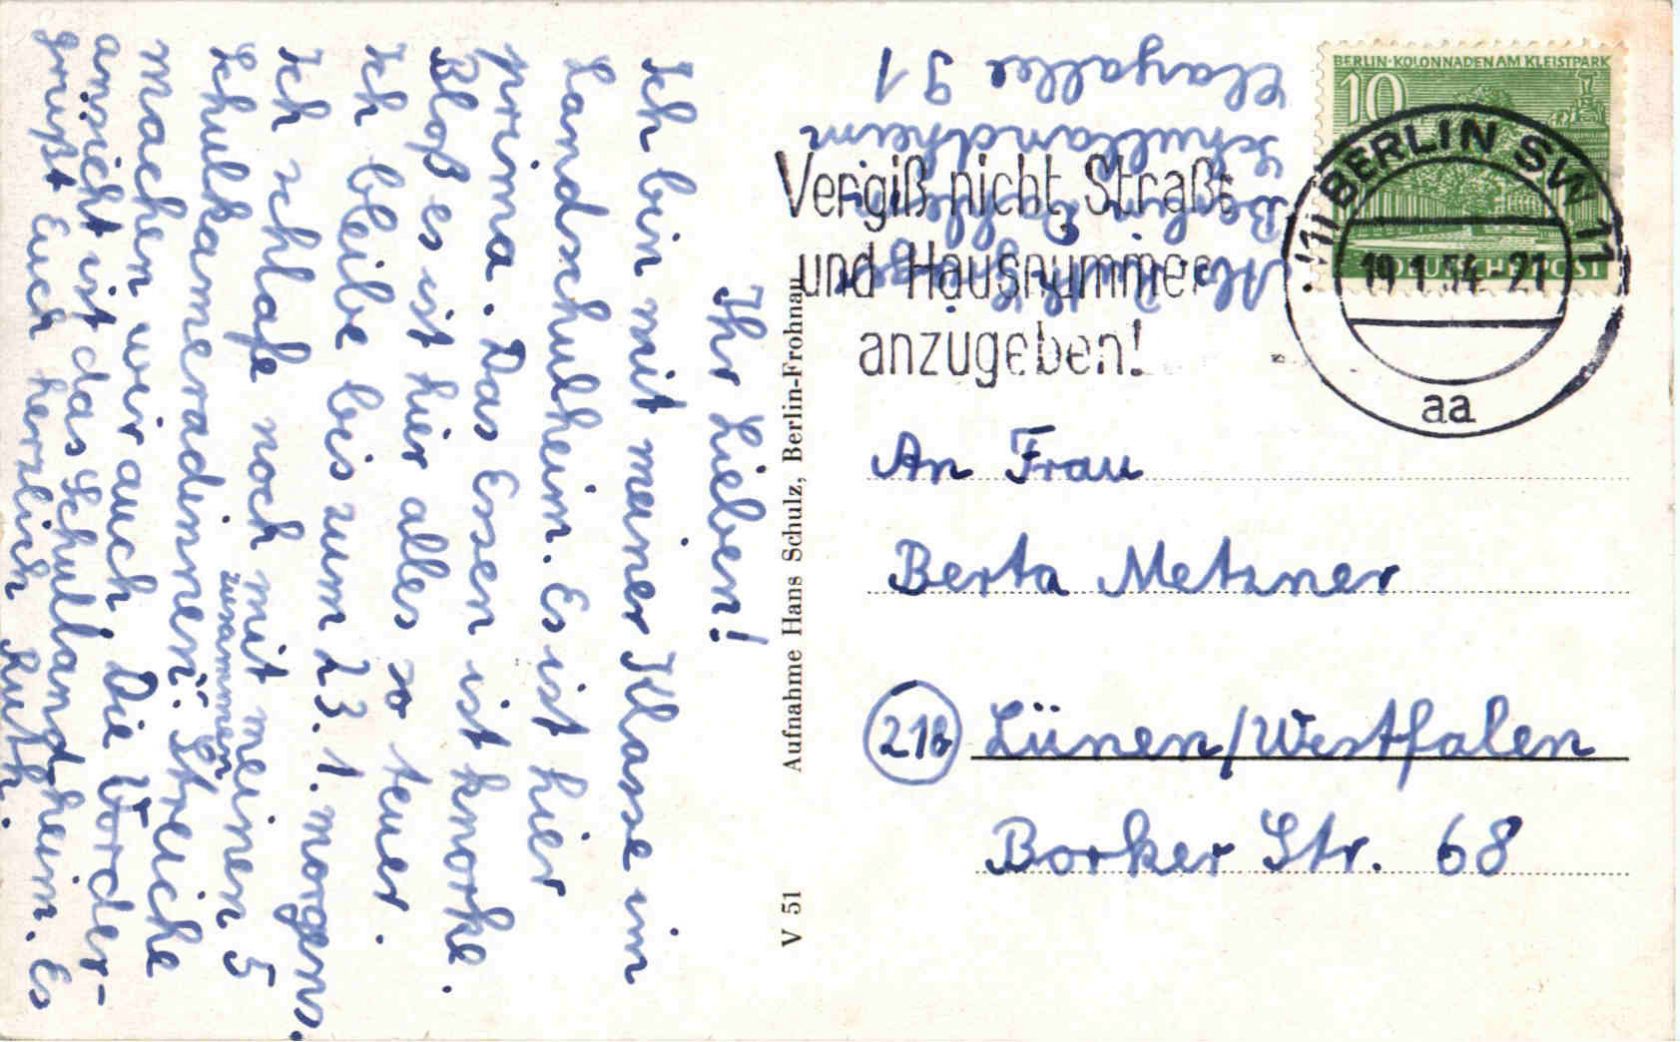 Ihr Lieben!
Ich bin mit meiner Klasse im
Landschulheim. Es ist hier
prima. Das Essen ist knorke.
Bloß es ist hier alles so teuer.
Ich bleibe bis zum 23.1. morgens.
Ich schlafe noch mit meinen 5
zusammen
Schulkameradinnen. Streiche
machen wir auch. Die Vorder-
ansicht ist das Schullandheim. Es
grüßt Euch herzlich Ruth.
V 51 Aufnahme Hans Schulz, Berlin-Frohnau
Berlin Zehlendorf
Schullandheim
Clayallee 91
BERLIN·KOLONNADEN AM KLEISTPARK
10
DEUTSCHE POST
BERLIN SW 11
19.1.54-21
aa
Vergiß nicht, Straße
und Hausnummer
anzugeben!
An Frau
Berta Metzner
21b Lünen/Westfalen
Borker Str. 68